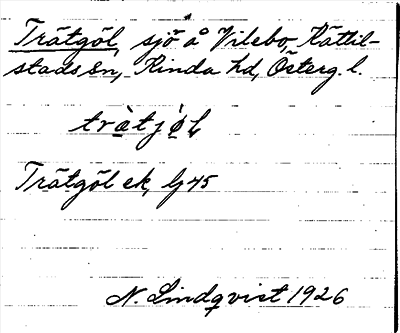 Trätgöl, sjö å Vilebo, Kättil-
stads sn, Kinda hd, Österg. l.
tràtjö̀l
Trätgöl ek, lj 45
N. Lindqvist 1926